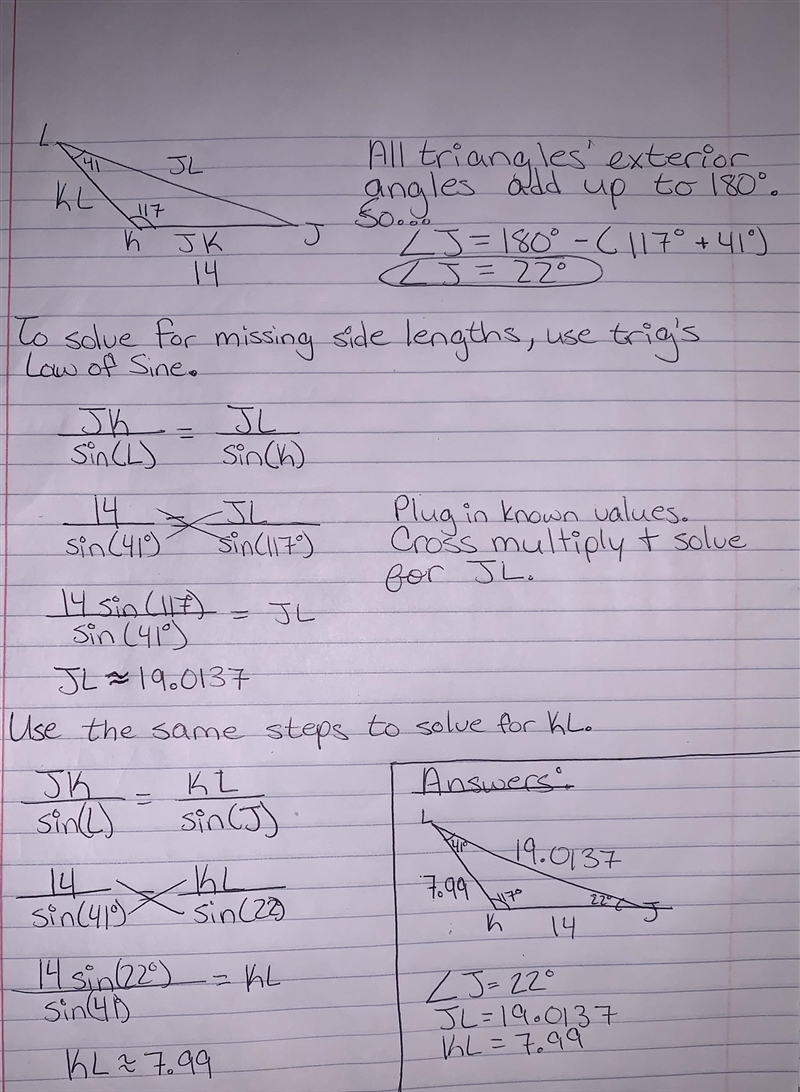 L
41
JL
KL
117
K
JK
J
14
All triangles' exterior
angles add up to 180°.
So...
∠J = 180° - (117° + 41°)
∠J = 22°
To solve for missing side lengths, use trig's
Law of Sine.
JK / sin(L) = JL / sin(K)
14 / sin(41°) = JL / sin(117°)
Plug in known values.
Cross multiply + solve
for JL.
14 sin(117°) / sin(41°) = JL
JL ≈ 19.0137
Use the same steps to solve for KL.
JK / sin(L) = KL / sin(J)
14 / sin(41°) = KL / sin(22)
14 sin(22°) / sin(41°) = KL
KL ≈ 7.99
Answers:
L
41°
19.0137
7.99
117°
22°
K
14
J
∠J = 22°
JL = 19.0137
KL = 7.99